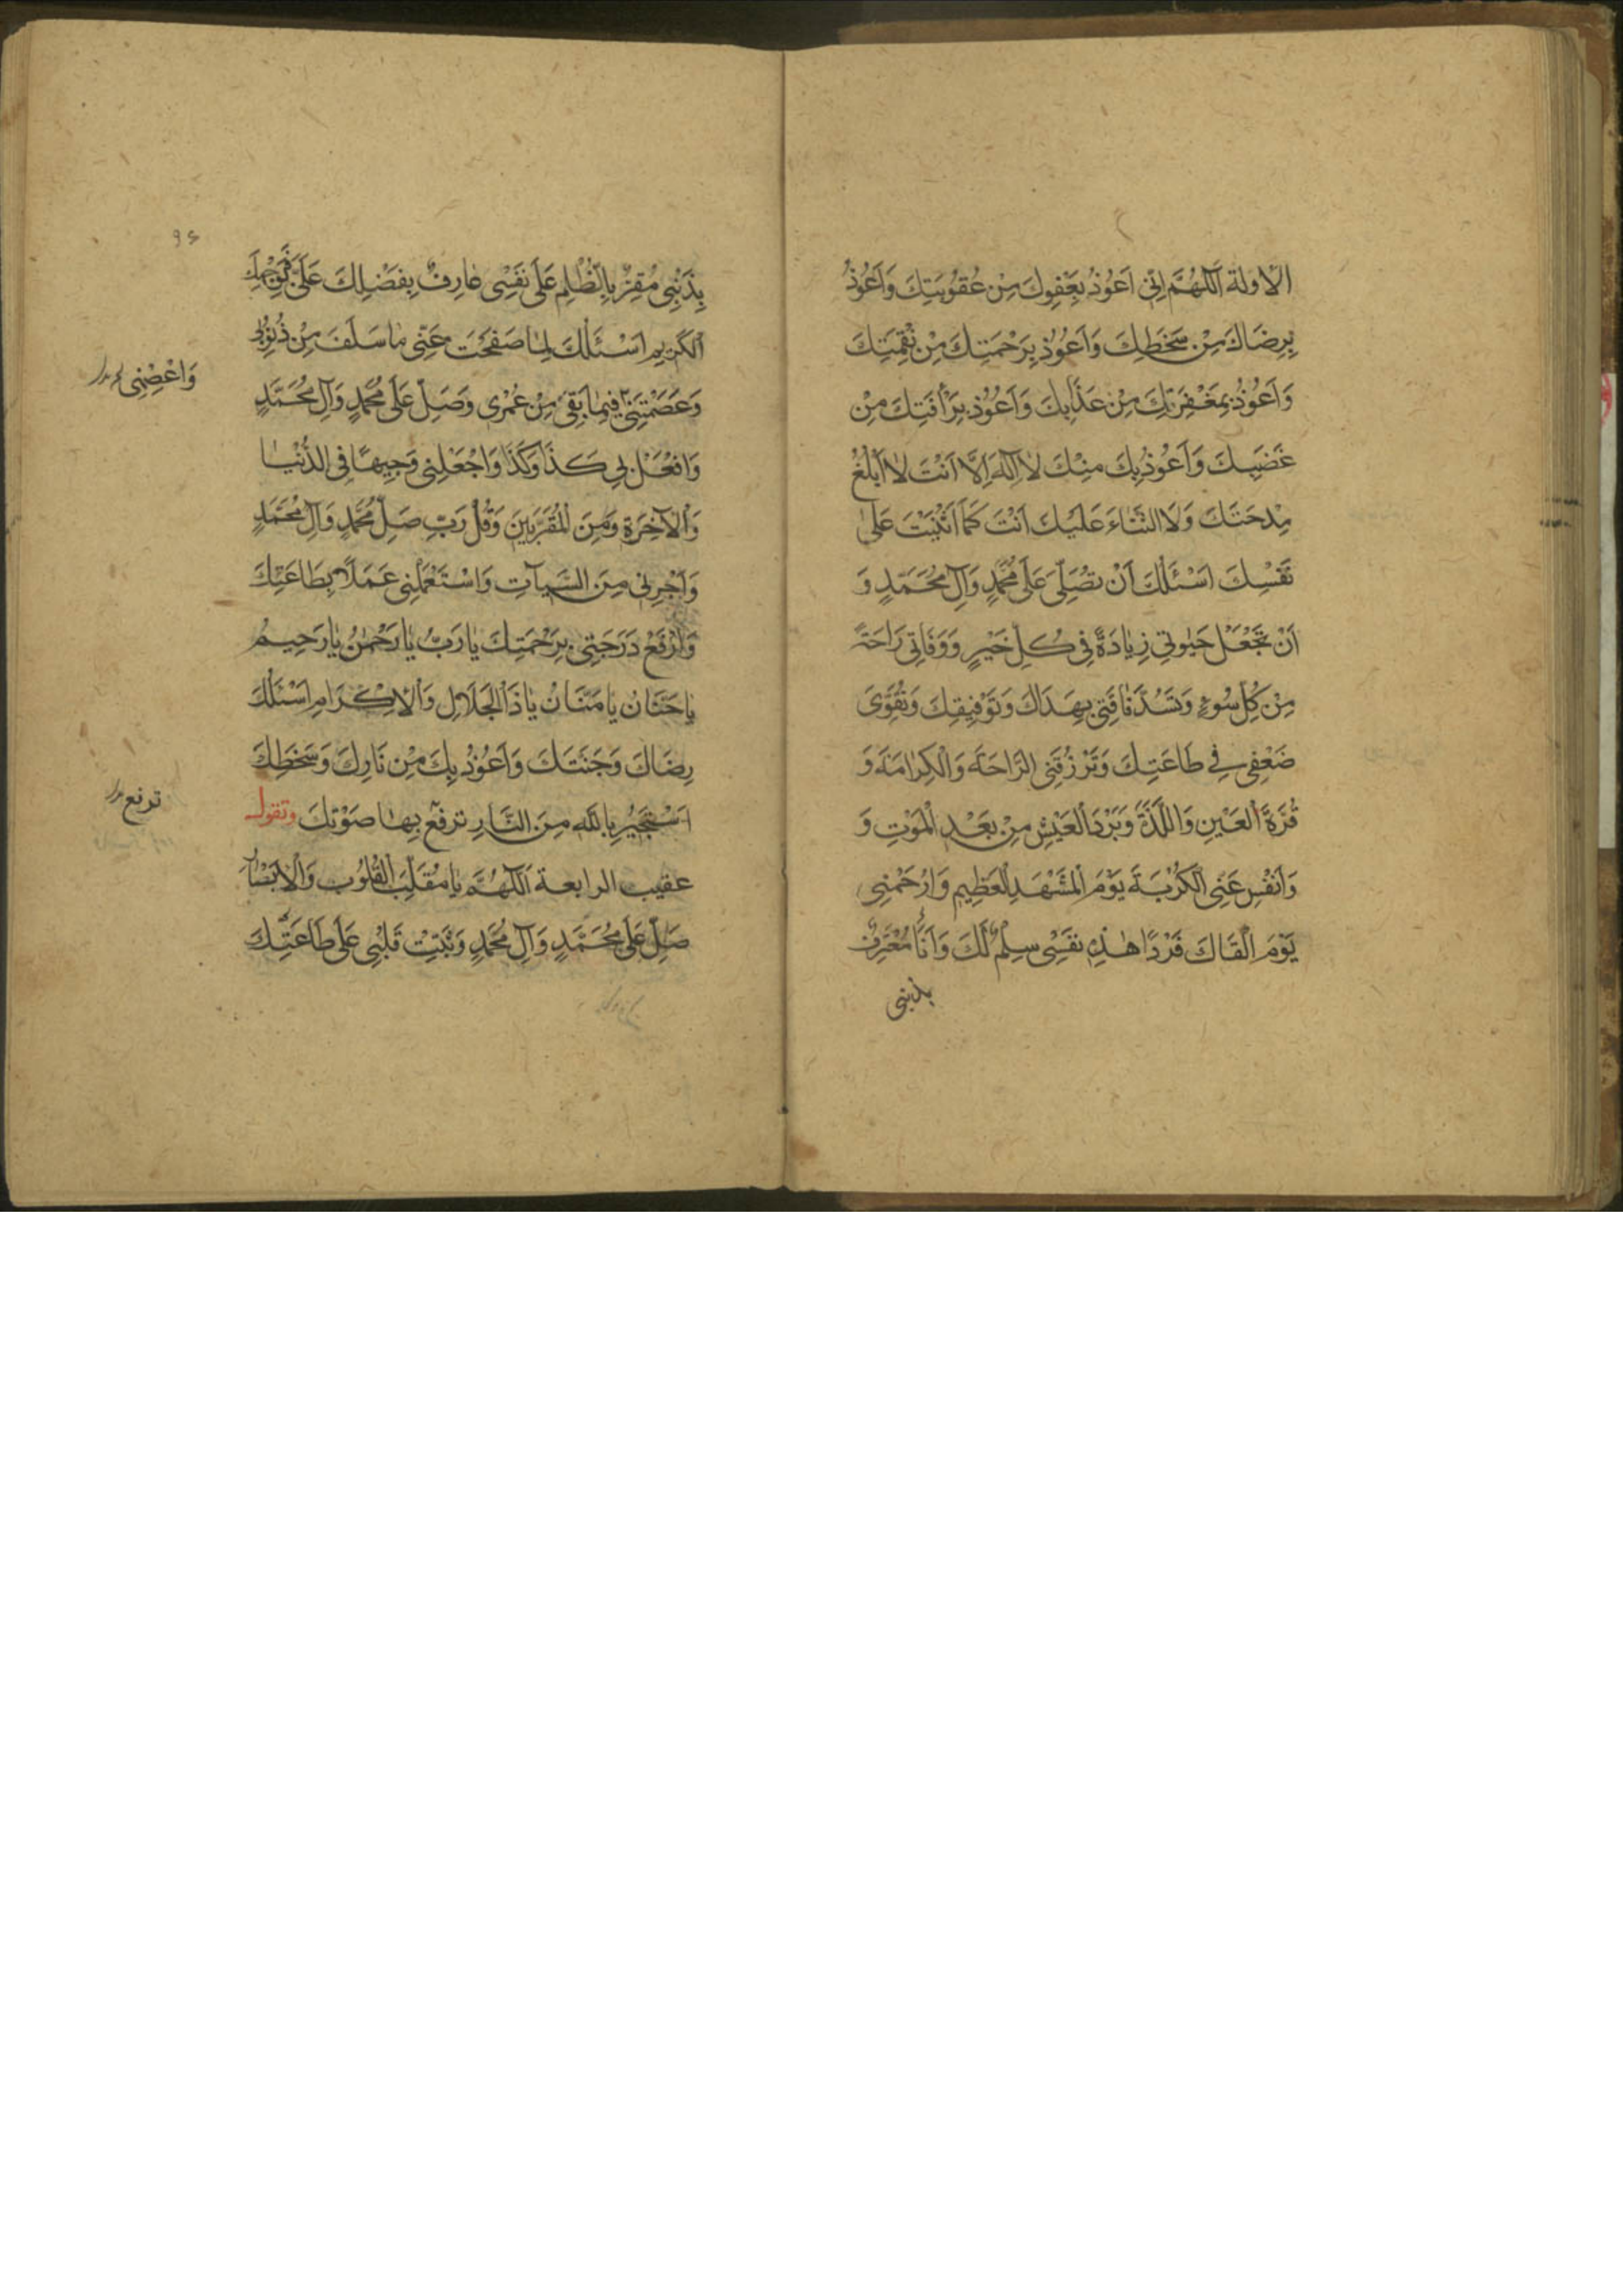 الاولة اَللّٰهُمَّ اِنّي اَعُوذُ بِعَفْوِكَ مِنْ عُقُوبَتِكَ وَاَعُوذُ
بِرِضَاكَ مِنْ سَخَطِكَ وَاَعُوذُ بِرَحْمَتِكَ مِنْ نَقِمَتِكَ
وَاَعُوذُ بِمَغْفِرَتِكَ مِنْ عَذَابِكَ وَاَعُوذُ بِرَأْفَتِكَ مِنْ
غَضَبِكَ وَاَعُوذُ بِكَ مِنْكَ لاٰ اِلٰهَ اِلَّا اَنْتَ لاٰ اَبْلُغُ
مِدْحَتَكَ وَلاَ الثَّنَاءَ عَلَيْكَ اَنْتَ كَمَا اَثْنَيْتَ عَلىٰ
نَفْسِكَ اَسْئَلُكَ اَنْ تُصَلِّيَ عَلىٰ مُحَمَّدٍ وَآلِ مُحَمَّدٍ وَ
اَنْ تَجْعَلَ حَيٰوتِي زِيٰادَةً فِي كُلِّ خَيْرٍ وَوَفَاتِي رَاحَةً
مِنْ كُلِّ سُوءٍ وَتَسُدَّ فٰاقَتِي بِهُدَاكَ وَتَوْفِيقِكَ وَتُقَوِّيَ
ضَعْفِي فِي طَاعَتِكَ وَتَرْزُقَنِي الرَّاحَةَ وَالْكَرٰامَةَ وَ
قُرَّةَ الْعَيْنِ وَاللَّذَّةَ وَبَرْدَ الْعَيْشِ مِنْ بَعْدِ الْمَوْتِ وَ
وَاَنْفُسِ عَنِي الْكُرْبَةَ يَوْمَ الْمَشْهَدِ الْعَظِيمِ وَارْحَمْنِي
يَوْمَ اَلْقَاكَ فَرْدًا هٰذِهِ نَفْسِي سِلْمٌ لَكَ وَاَنَا مُعْتَرِفٌ
بذنبى
بِذَنْبِي مُقِرٌّ بِالظُّلْمِ عَلىٰ نَفْسِي عٰارِفٌ بِفَضْلِكَ عَلَيَّ فَبِوَجْهِكَ
الْكَرِيمِ اَسْئَلُكَ لِمٰا صَفَحْتَ عَنِّي مٰا سَلَفَ مِنْ ذُنُوبِي
وَعَصَمْتَنِي فِيمٰا بَقِيَ مِنْ عُمْرِي وَصَلِّ عَلىٰ مُحَمَّدٍ وَآلِ مُحَمَّدٍ
وَاعْصِمْنِى
وَافْعَلْ بِي كَذَا وَكَذَا وَاجْعَلْنِي وَجِيهًا فِي الدُّنْيٰا
وَالْآخِرَةِ وَمِنَ الْمُقَرَّبِينَ وَقُلْ رَبِّ صَلِّ مُحَمَّدٍ وَآلِ مُحَمَّدٍ
وَاَجِرْنِي مِنَ السَّيِّآتِ وَاسْتَعْمِلْنِي عَمَلًا بِطَاعَتِكَ
وَارْفَعْ دَرَجَتِي بِرَحْمَتِكَ يٰا رَبُّ يٰا رَحْمٰنُ يٰا رَحِيمُ
يٰا حَنَّانُ يٰا مَنَّانُ يٰا ذَا الْجَلَالِ وَالْاِكْرَامِ اَسْئَلُكَ
رِضَاكَ وَجَنَّتَكَ وَاَعُوذُ بِكَ مِنْ نَارِكَ وَسَخَطِكَ
اَسْتَجِيرُ بِاللّٰهِ مِنَ النَّارِ تَرْفَعُ بِهٰا صَوْتَكَ وتقول
ترفع
عقيب الرابعة اَللّٰهُمَّ يٰا مُقَلِّبَ الْقُلُوبِ وَالْاَبْصَارِ
صَلِّ عَلىٰ مُحَمَّدٍ وَآلِ مُحَمَّدٍ وَثَبِّتْ قَلْبِي عَلىٰ طَاعَتِكَ